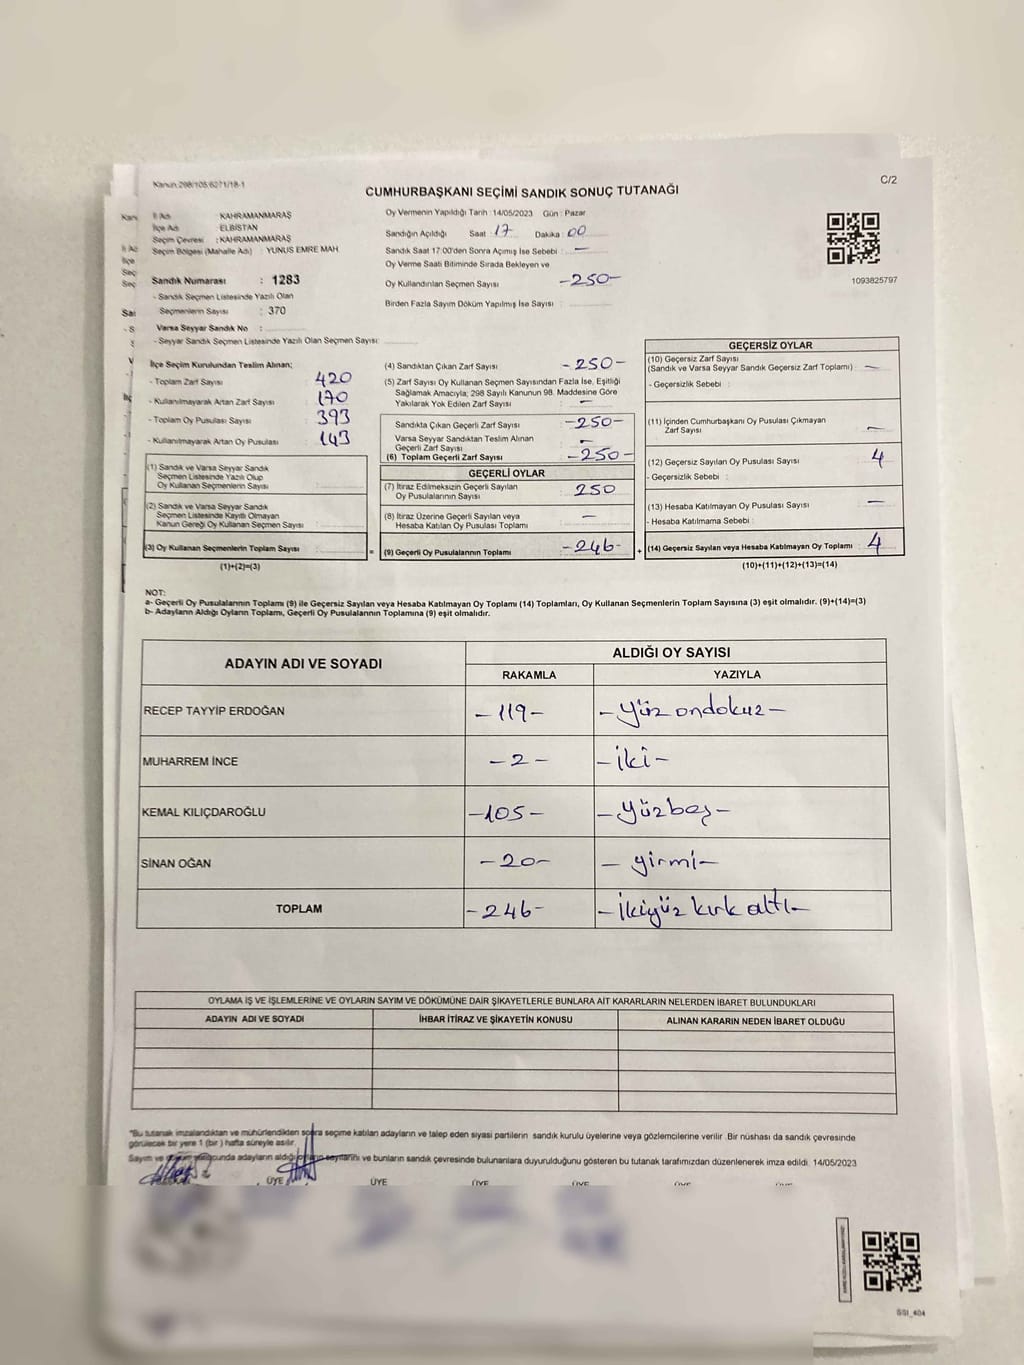 Kanun:298/105,6271/18-1
C/2
CUMHURBAŞKANI SEÇİMİ SANDIK SONUÇ TUTANAĞI
İl Adı : KAHRAMANMARAŞ
İlçe Adı : ELBİSTAN
Seçim Çevresi : KAHRAMANMARAŞ
Seçim Bölgesi (Mahalle Adı) : YUNUS EMRE MAH.
Sandık Numarası : 1283
- Sandık Seçmen Listesinde Yazılı Olan
Seçmenlerin Sayısı : 370
Varsa Seyyar Sandık No :
- Seyyar Sandık Seçmen Listesinde Yazılı Olan Seçmen Sayısı:
Oy Vermenin Yapıldığı Tarih : 14/05/2023 Gün : Pazar
Sandığın Açıldığı Saat : 17 Dakika : 00
Sandık Saat 17:00'den Sonra Açımış İse Sebebi : —
Oy Verme Saati Bitiminde Sırada Bekleyen ve
Oy Kullandırılan Seçmen Sayısı -250-
Birden Fazla Sayım Döküm Yapılmış İse Sayısı :
1093825797
İlçe Seçim Kurulundan Teslim Alınan;
- Toplam Zarf Sayısı : 420
- Kullanılmayarak Artan Zarf Sayısı : 170
- Toplam Oy Pusulası Sayısı : 393
- Kullanılmayarak Artan Oy Pusulası : 143
(1) Sandık ve Varsa Seyyar Sandık
Seçmen Listesinde Yazılı Olup
Oy Kullanan Seçmenlerin Sayısı :
(2) Sandık ve Varsa Seyyar Sandık
Seçmen Listesinde Kayıtlı Olmayan
Kanun Gereği Oy Kullanan Seçmen Sayısı :
(3) Oy Kullanan Seçmenlerin Toplam Sayısı :
(1)+(2)=(3)
(4) Sandıktan Çıkan Zarf Sayısı -250-
(5) Zarf Sayısı Oy Kullanan Seçmen Sayısından Fazla İse, Eşitliği
Sağlamak Amacıyla; 298 Sayılı Kanunun 98. Maddesine Göre
Yakılarak Yok Edilen Zarf Sayısı : —
Sandıkta Çıkan Geçerli Zarf Sayısı -250-
Varsa Seyyar Sandıktan Teslim Alınan
Geçerli Zarf Sayısı : —
(6) Toplam Geçerli Zarf Sayısı -250-
GEÇERLİ OYLAR
(7) İtiraz Edilmeksizin Geçerli Sayılan
Oy Pusulalarının Sayısı 250
(8) İtiraz Üzerine Geçerli Sayılan veya
Hesaba Katılan Oy Pusulası Toplamı —
= (9) Geçerli Oy Pusulalarının Toplamı -246-
GEÇERSİZ OYLAR
(10) Geçersiz Zarf Sayısı
(Sandık ve Varsa Seyyar Sandık Geçersiz Zarf Toplamı) : —
- Geçersizlik Sebebi :
(11) İçinden Cumhurbaşkanı Oy Pusulası Çıkmayan
Zarf Sayısı —
(12) Geçersiz Sayılan Oy Pusulası Sayısı : 4
- Geçersizlik Sebebi :
(13) Hesaba Katılmayan Oy Pusulası Sayısı : —
- Hesaba Katılmama Sebebi :
+ (14) Geçersiz Sayılan veya Hesaba Katılmayan Oy Toplamı : 4
(10)+(11)+(12)+(13)=(14)
NOT:
a- Geçerli Oy Pusulalarının Toplamı (9) ile Geçersiz Sayılan veya Hesaba Katılmayan Oy Toplamı (14) Toplamları, Oy Kullanan Seçmenlerin Toplam Sayısına (3) eşit olmalıdır. (9)+(14)=(3)
b- Adayların Aldığı Oyların Toplamı, Geçerli Oy Pusulalarının Toplamına (9) eşit olmalıdır.
ADAYIN ADI VE SOYADI
ALDIĞI OY SAYISI
RAKAMLA YAZIYLA
RECEP TAYYİP ERDOĞAN -119- -Yüz ondokuz-
MUHARREM İNCE -2- -iki-
KEMAL KILIÇDAROĞLU -105- -Yüzbeş-
SİNAN OĞAN -20- -yirmi-
TOPLAM -246- -İkiyüz kırk altı-
OYLAMA İŞ VE İŞLEMLERİNE VE OYLARIN SAYIM VE DÖKÜMÜNE DAİR ŞİKAYETLERLE BUNLARA AİT KARARLARIN NELERDEN İBARET BULUNDUKLARI
ADAYIN ADI VE SOYADI İHBAR İTİRAZ VE ŞİKAYETİN KONUSU ALINAN KARARIN NEDEN İBARET OLDUĞU
*Bu tutanak imzalandıktan ve mühürlendikten sonra seçime katılan adayların ve talep eden siyasi partilerin sandık kurulu üyelerine veya gözlemcilerine verilir .Bir nüshası da sandık çevresinde
görülecek bir yere 1 (bir ) hafta süreyle asılır.
Sayım ve adayların aldığı sayılarını ve bunların sandık çevresinde bulunanlara duyurulduğunu gösteren bu tutanak tarafımızdan düzenlenerek imza edildi. 14/05/2023
ÜYE ÜYE ÜYE ÜYE
SSI_404